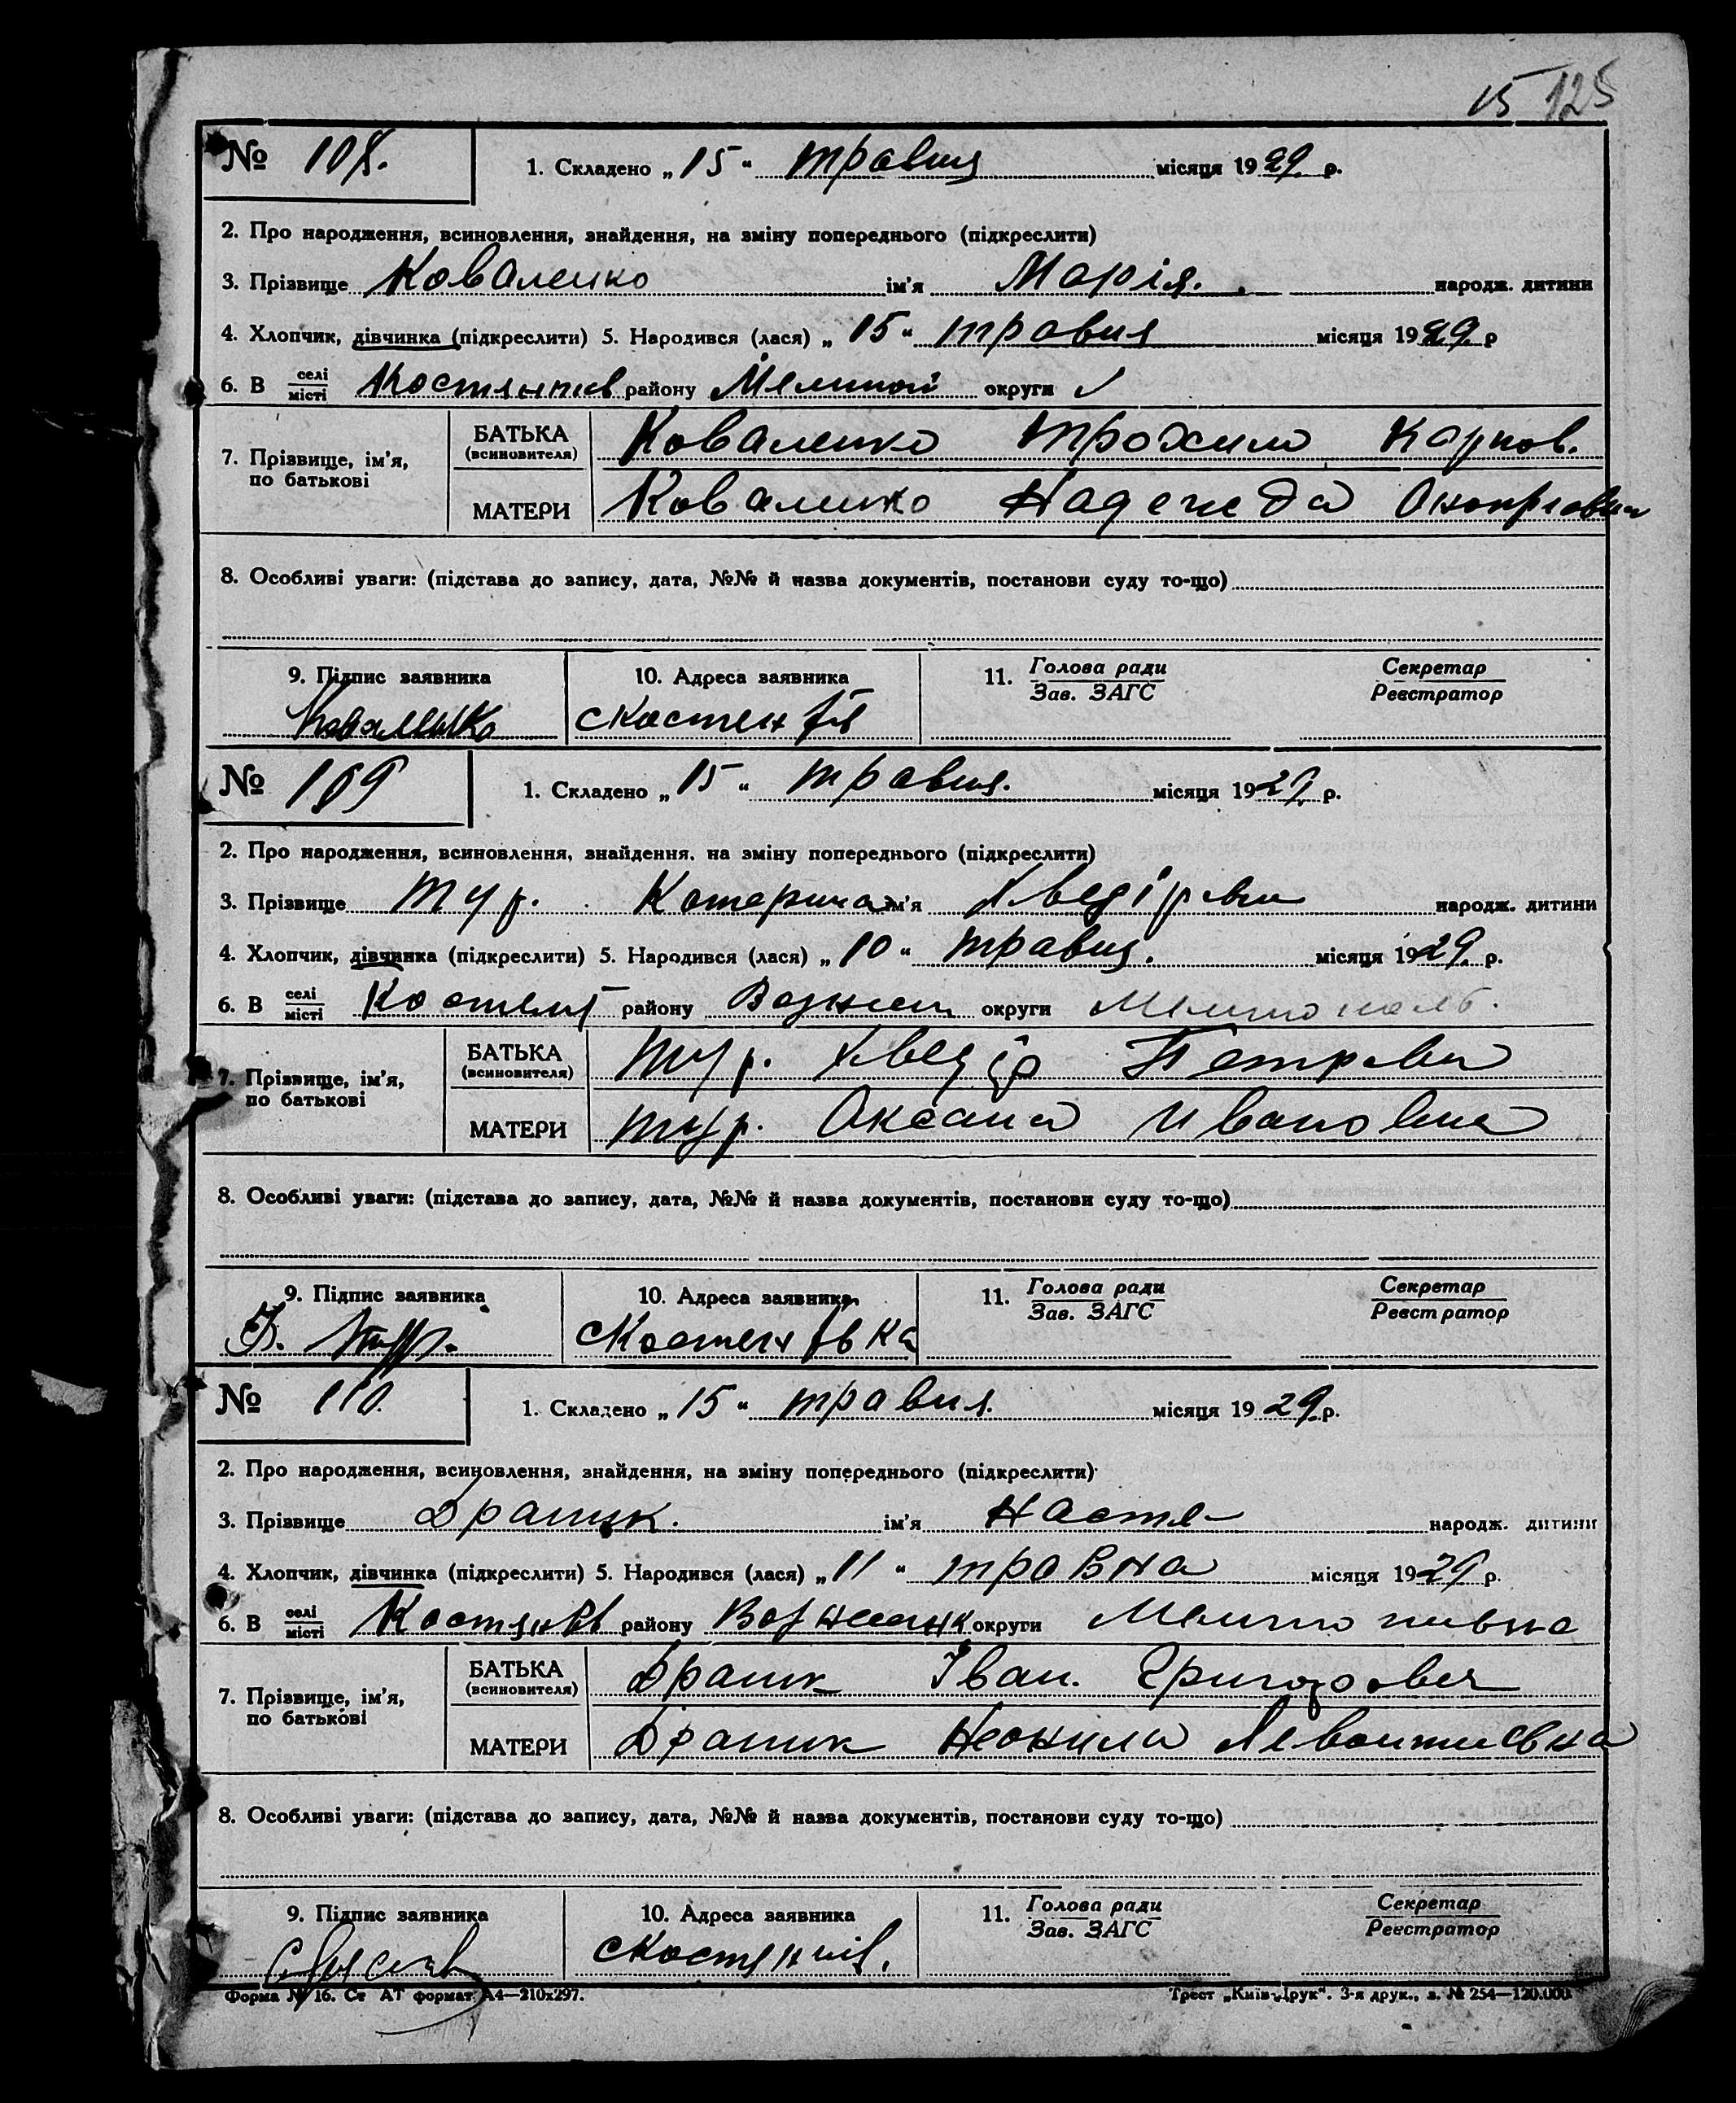 15 125
№ 108. 1. Складено „15“ травня місяця 1929 р.
2. Про народження, всиновлення, знайдення, на зміну попереднього (підкреслити)
3. Прізвище Коваленко ім'я Марія. народж. дитини
4. Хлопчик, дівчинка (підкреслити) 5. Народився (лася) „15“ травня місяця 1929 р
6. В селі місті Костянтів району Мелитоп округи
7. Прізвище, ім'я, по батькові БАТЬКА (всиновителя) Коваленко Трохим Карпов.
МАТЕРИ Коваленко Надежда
8. Особливі уваги: (підстава до запису, дата, №№ й назва документів, постанови суду то-що)
9. Підпис заявника 10. Адреса заявника 11. Голова ради Зав. ЗАГС Секретар Реєстратор
Коваленко
№ 109 1. Складено „15“ травня. місяця 1929 р.
2. Про народження, всиновлення, знайдення. на зміну попереднього (підкреслити)
3. Прізвище Тур. Катерина ім'я народж. дитини
4. Хлопчик, дівчинка (підкреслити) 5. Народився (лася) „10“ травня. місяця 1929 р.
6. В селі місті району округи
7. Прізвище, ім'я, по батькові БАТЬКА (всиновителя) Тур. Хведір Петрович
МАТЕРИ Тур. Оксана Ивановна
8. Особливі уваги: (підстава до запису, дата, №№ й назва документів, постанови суду то-що)
9. Підпис заявника 10. Адреса заявника 11. Голова ради Зав. ЗАГС Секретар Реєстратор
№ 110. 1. Складено „15“ травня. місяця 1929 р.
2. Про народження, всиновлення, знайдення, на зміну попереднього (підкреслити)
3. Прізвище Драник. ім'я Настя народж. дитини
4. Хлопчик, дівчинка (підкреслити) 5. Народився (лася) „11“ травна місяця 1929 р.
6. В селі місті району округи
7. Прізвище, ім'я, по батькові БАТЬКА (всиновителя) Драник Іван. Григорович
МАТЕРИ Драник Неонила Левонтиевна
8. Особливі уваги: (підстава до запису, дата, №№ й назва документів, постанови суду то-що)
9. Підпис заявника 10. Адреса заявника 11. Голова ради Зав. ЗАГС Секретар Реєстратор
Форма № 16. Ст АТ формат А4—210х297. Трест „Київ-Друк“. 3-я друк., з. № 254—120.000